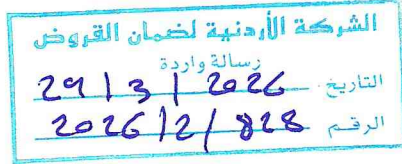 الشركة الأردنية لضمان القروض
رسالة واردة
التاريخ 29/3/2026
الرقم 2026/2/828